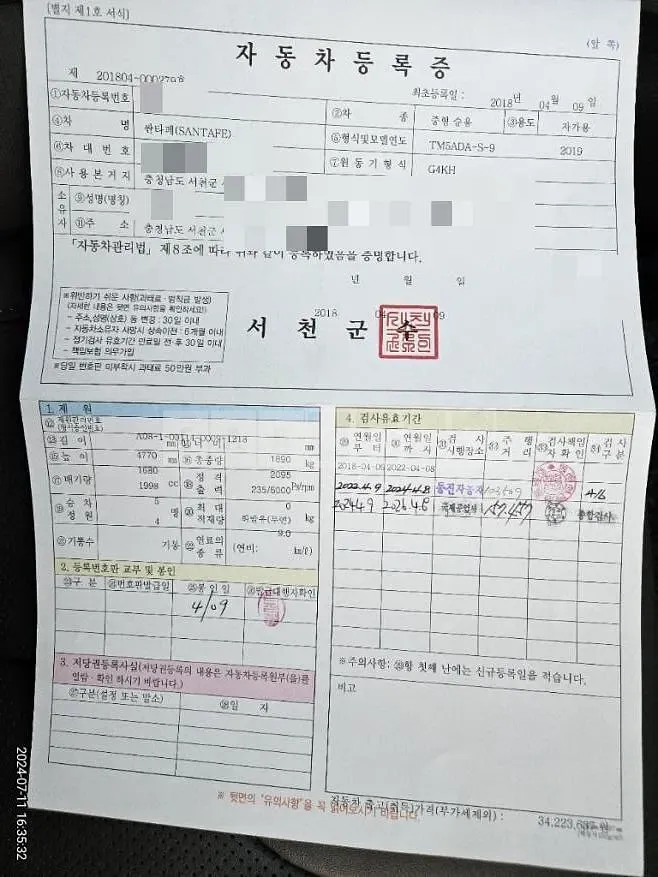 [별지 제1호 서식]
(앞 쪽)
자 동 차 등 록 증
제 201804-000279호
최초등록일 : 2018년 04월 09일
①자동차등록번호
②차 종 중형 승용 ③용도 자가용
④차 명 싼타페(SANTAFE)
⑤형식및모델연도 TM5ADA-S-9 2019
⑥차 대 번 호
⑦원 동 기 형 식 G4KH
⑧사 용 본 거 지 충청남도 서천군
소유자
⑨성명(명칭)
⑪주 소 충청남도 서천군
「자동차관리법」 제8조에 따라 위와 같이 등록하였음을 증명합니다.
년 월 일
2018 04 09
※위반하기 쉬운 사항(과태료·범칙금 발생)
(자세한 내용은 뒷면 유의사항을 확인하세요!)
- 주소,성명(상호) 등 변경 : 30일 이내
- 자동차소유자 사망시 상속이전 : 6개월 이내
- 정기검사 유효기간 만료일 전·후 30일 이내
- 책임보험 의무가입
※당일 번호판 미부착시 과태료 50만원 부과
서 천 군 수
1. 제 원
⑫ 제원관리번호
(형식승인번호)
A08-1-00114-0009-1218
⑬길 이 4770 mm
너 비 1890 mm
⑮높 이 1680 mm
총중량 2095 kg
⑰배기량 1998 cc
정 격 출 력 235/6000 Ps/rpm
승 차 정 원 5 명
최 대 적재량 0 kg
4
휘발유(무연)
기통수 기통
연료의 종류 (연비: 9.0 km/ℓ)
2. 등록번호판 교부 및 봉인
구 분 번호판발급일 봉 인 일 발급대행자확인
4/09
3. 저당권등록사실(저당권등록의 내용은 자동차등록원부(을)를
열람·확인 하시기 바랍니다.)
구분(설정 또는 말소) 일 자
4. 검사유효기간
연월일 부 터 연월일 까 지 검 사 시행장소 주 행 거 리 검사책임 자 확인 검 사 구 분
2018-04-09 2022-04-08
2022.4.9 2024.4.8 동진자동차 103509 4/6
2024.4.9 2026.4.8 157,457 종합검사
※주의사항: 항 첫째 난에는 신규등록일을 적습니다.
비고
※ 뒷면의 "유의사항"을 꼭 읽어보시기 바랍니다.
자동차 출고(취득)가격(부가세제외) : 34,223,637 원
2024-07-11 16:35:32